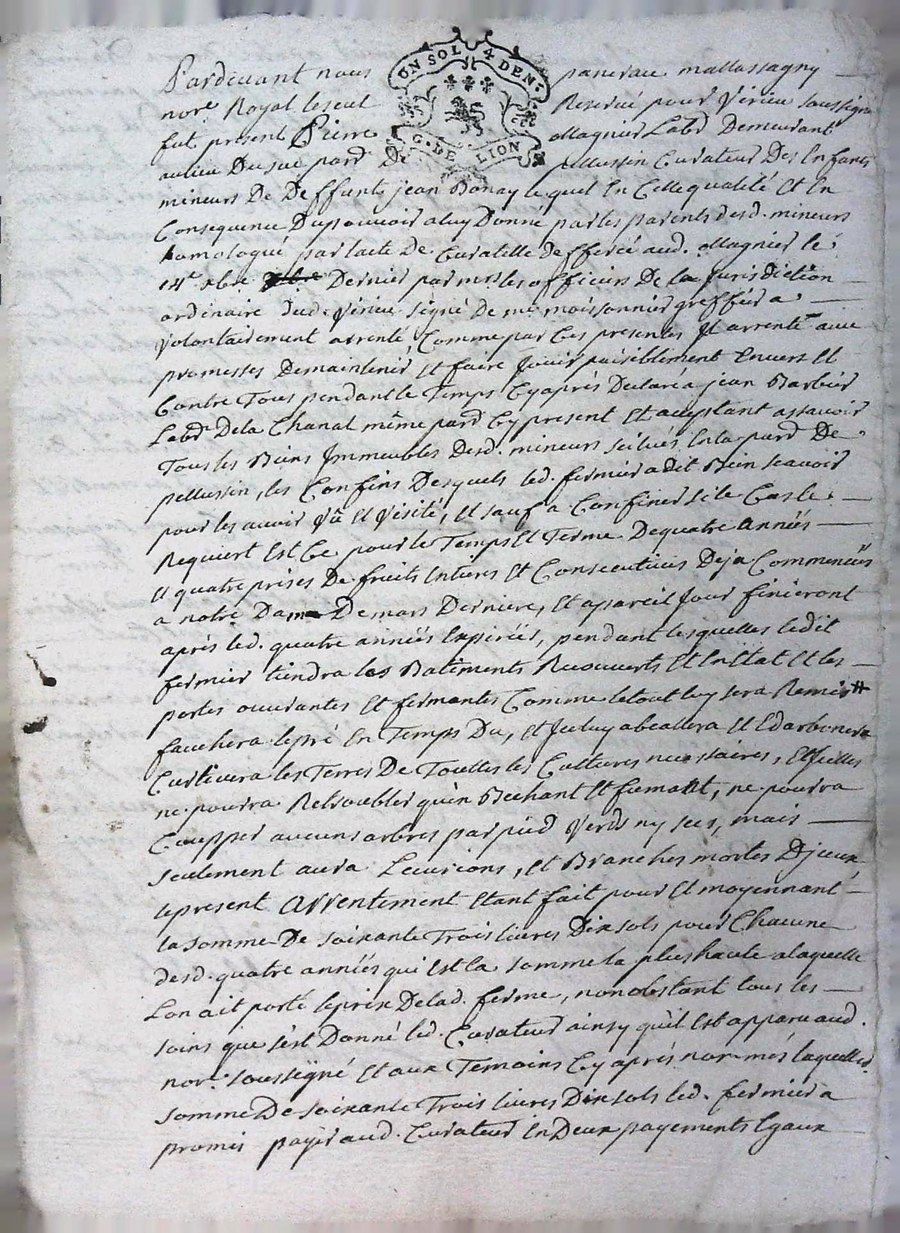 UN SOL 4 DEN.
G. DE LION
Pardevant nous pancrace mattassagny
nore. Royal le seul Reservé pour Virieu soussigné
fut present Pierre Magnier Labr. Demeurant
au lieu Du sac parr. de pellussin Curateur Des Enfants
mineurs De Deffunt jean Bonay lequel En Cette qualité Et En
Consequence Du pouvoir a luy Donné par les parents desd. mineurs
homologué par lacte de Curatelle defferée aud. Magnier le
14e. xbre Dernier par mrs les officiers De la Jurisdiction
ordinaire dud. Virieu signé de me moissonnier greffier a
volontairement arrenté, Comme par Ces presentes Il arrente avec
promesses De maintenir, Et faire Jouir paisiblement Envers Et
Contre Tous pendant le Temps Cy après Declaré a jean Barbier
Labr. De la Chanal même parr. Cy present Et aceptant assavoir
Tous les Biens Immeubles Desd. mineurs scitués En la parr. De
pellussin, les Confins Desquels led. fermier a dit Bien scavoir
pour les avoir vû Et visité, Et sauf a Confiner si le Cas le
Requiert Est Ce pour le Temps Et Terme De quatre Années
Et quatre prises De fruits Entieres Et Consecutives Deja Commencées
a notre Dame De mars Derniere, Et a pareil Jour finieront
après led. quatre années Expirées, pendant lesquelles ledit
fermier tiendra les Batiments Recouverts Et En Etat Et les
portes ouvrantes Et fermantes Comme le tout luy sera Remis #
fauchera le pré En Temps Du, Et Iceluy abeallera Et Edarbonera
Cultivera les Terres De Touttes les Cultures necessaires, Et Icelles
ne pourra Retroubler qu'en Bechant Et fumant, ne pourra
Coupper aucuns arbres par pied Verds ny secs, mais
seulement aura Les Et Branches mortes D'jceux
le present Arrentement Etant fait pour Et moyennant
la somme De soixante Trois livres Dix sols pour Chacune
desd. quatre années qui Est la somme la plus haute a laquelle
Lon ait porté le prix De lad. ferme, nonobstant tous les
soins que s'est Donné led. Curateur ainsy qu'il Est apparu aud.
nore. soussigné Et aux Temoins Cy après nommés laquelle d.
somme De soixante Trois livres Dix sols led. fermier a
promis payer aud. Curateur En Deux payements Egaux